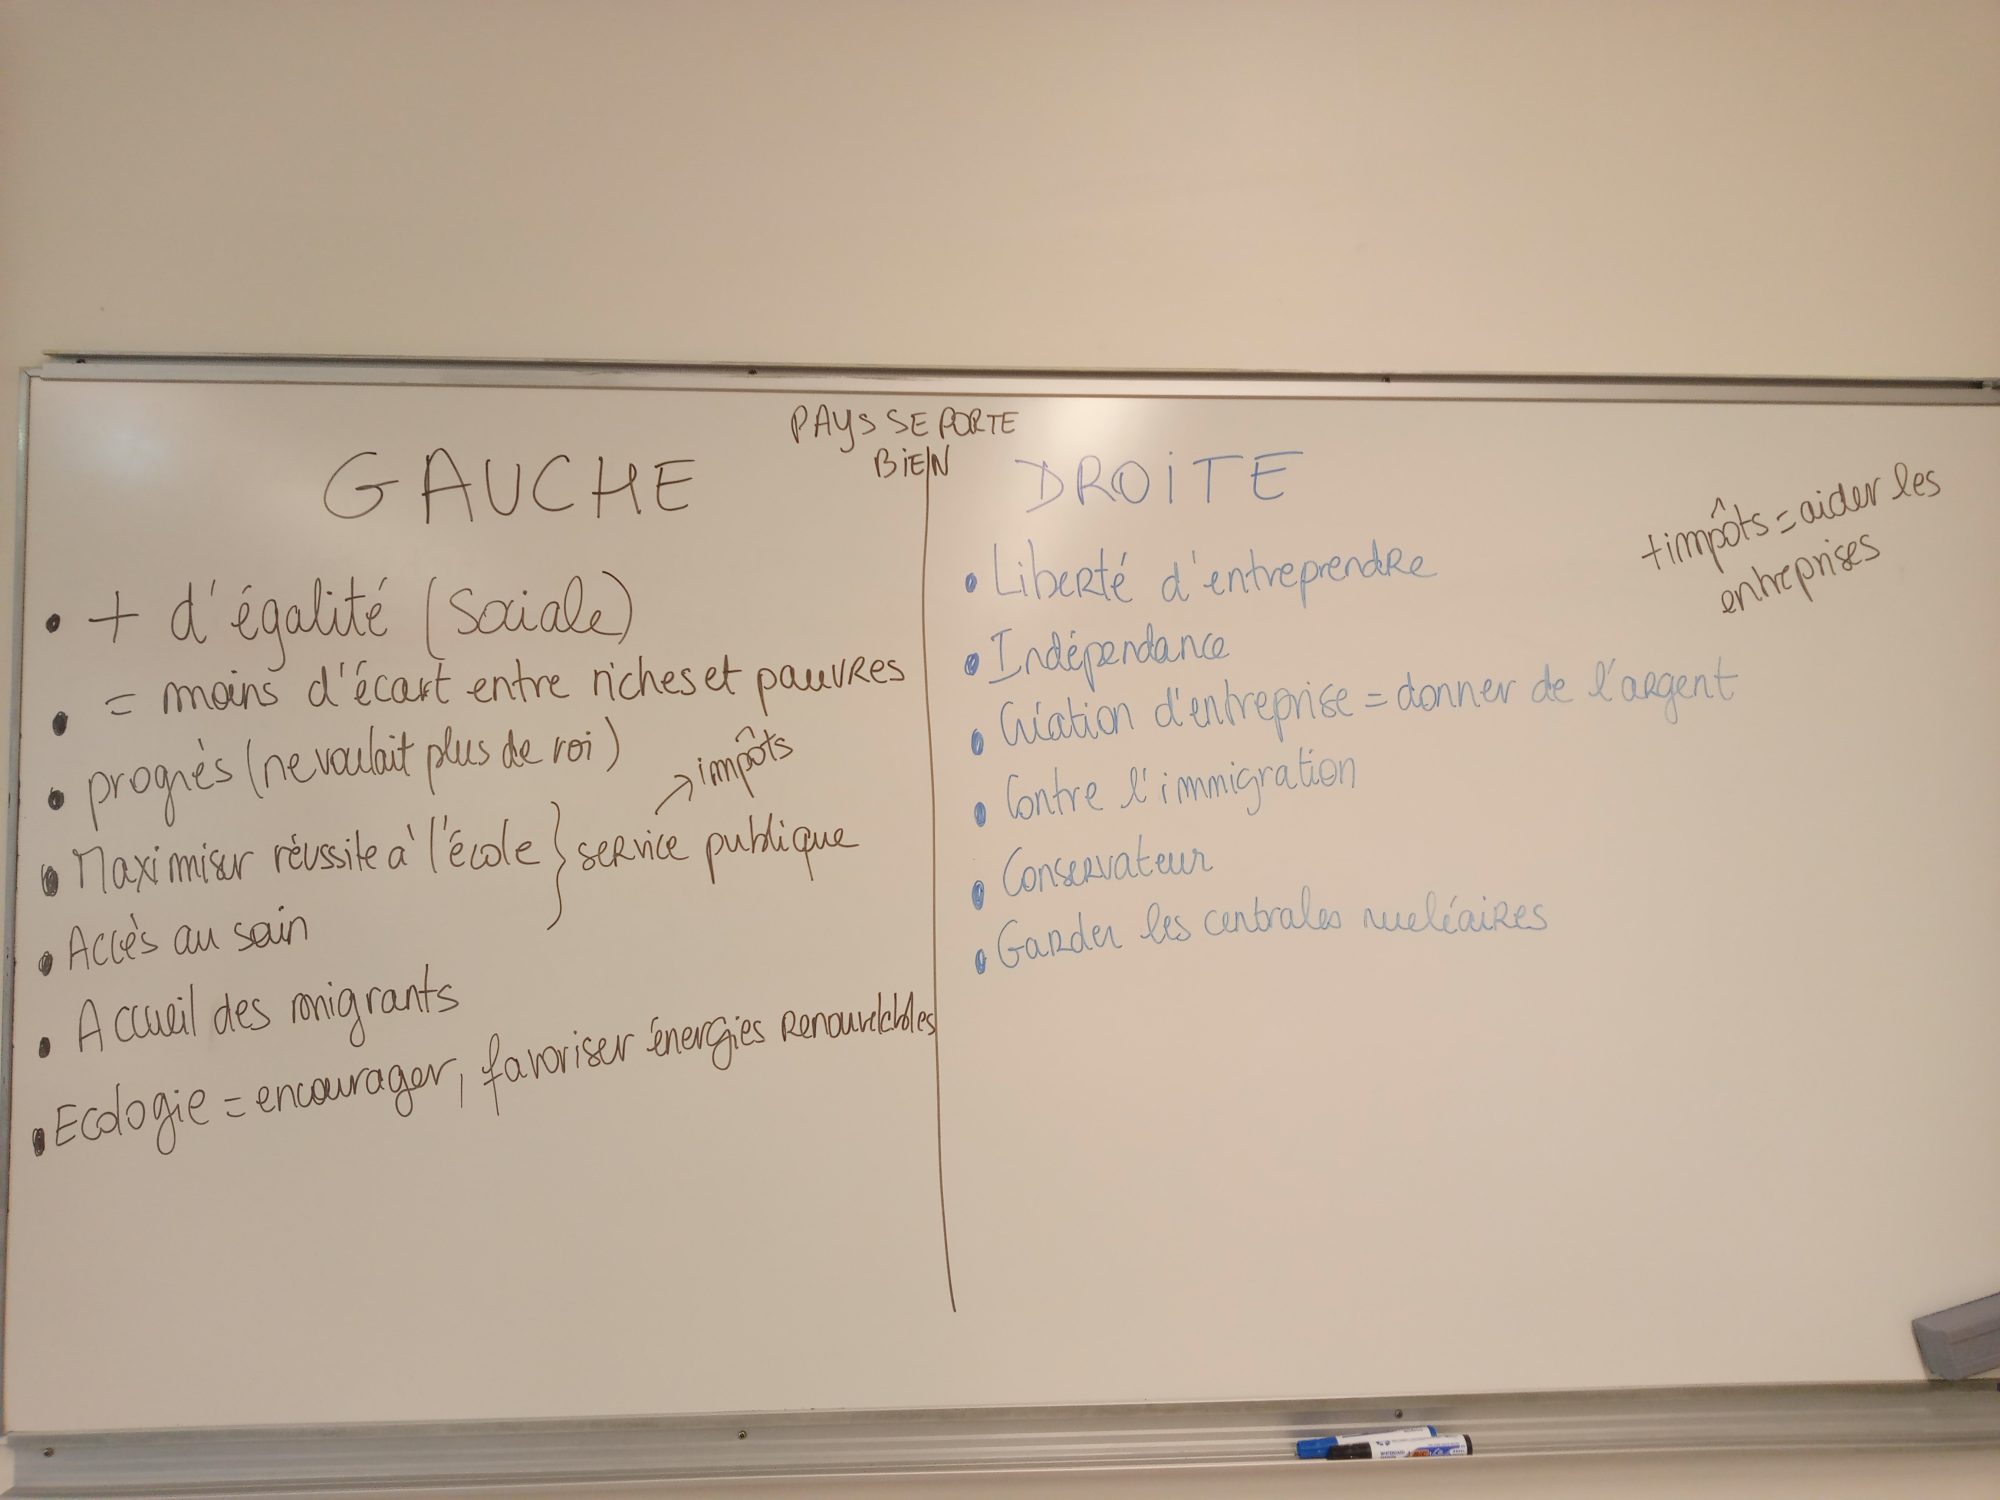 PAYS SE PORTE
BIEN
GAUCHE
• + d'égalité (sociale)
• = moins d'écart entre riches et pauvres
• progrès (ne voulait plus de roi)
• Maximiser réussite à l'école } service publique
→ impôts
• Accès au soin
• Accueil des migrants
• Ecologie = encourager, favoriser énergies renouvelables
DROITE
• Liberté d'entreprendre
• Indépendance
• Création d'entreprise = donner de l'argent
• Contre l'immigration
• Conservateur
• Garder les centrales nucléaires
+ impôts = aider les
entreprises